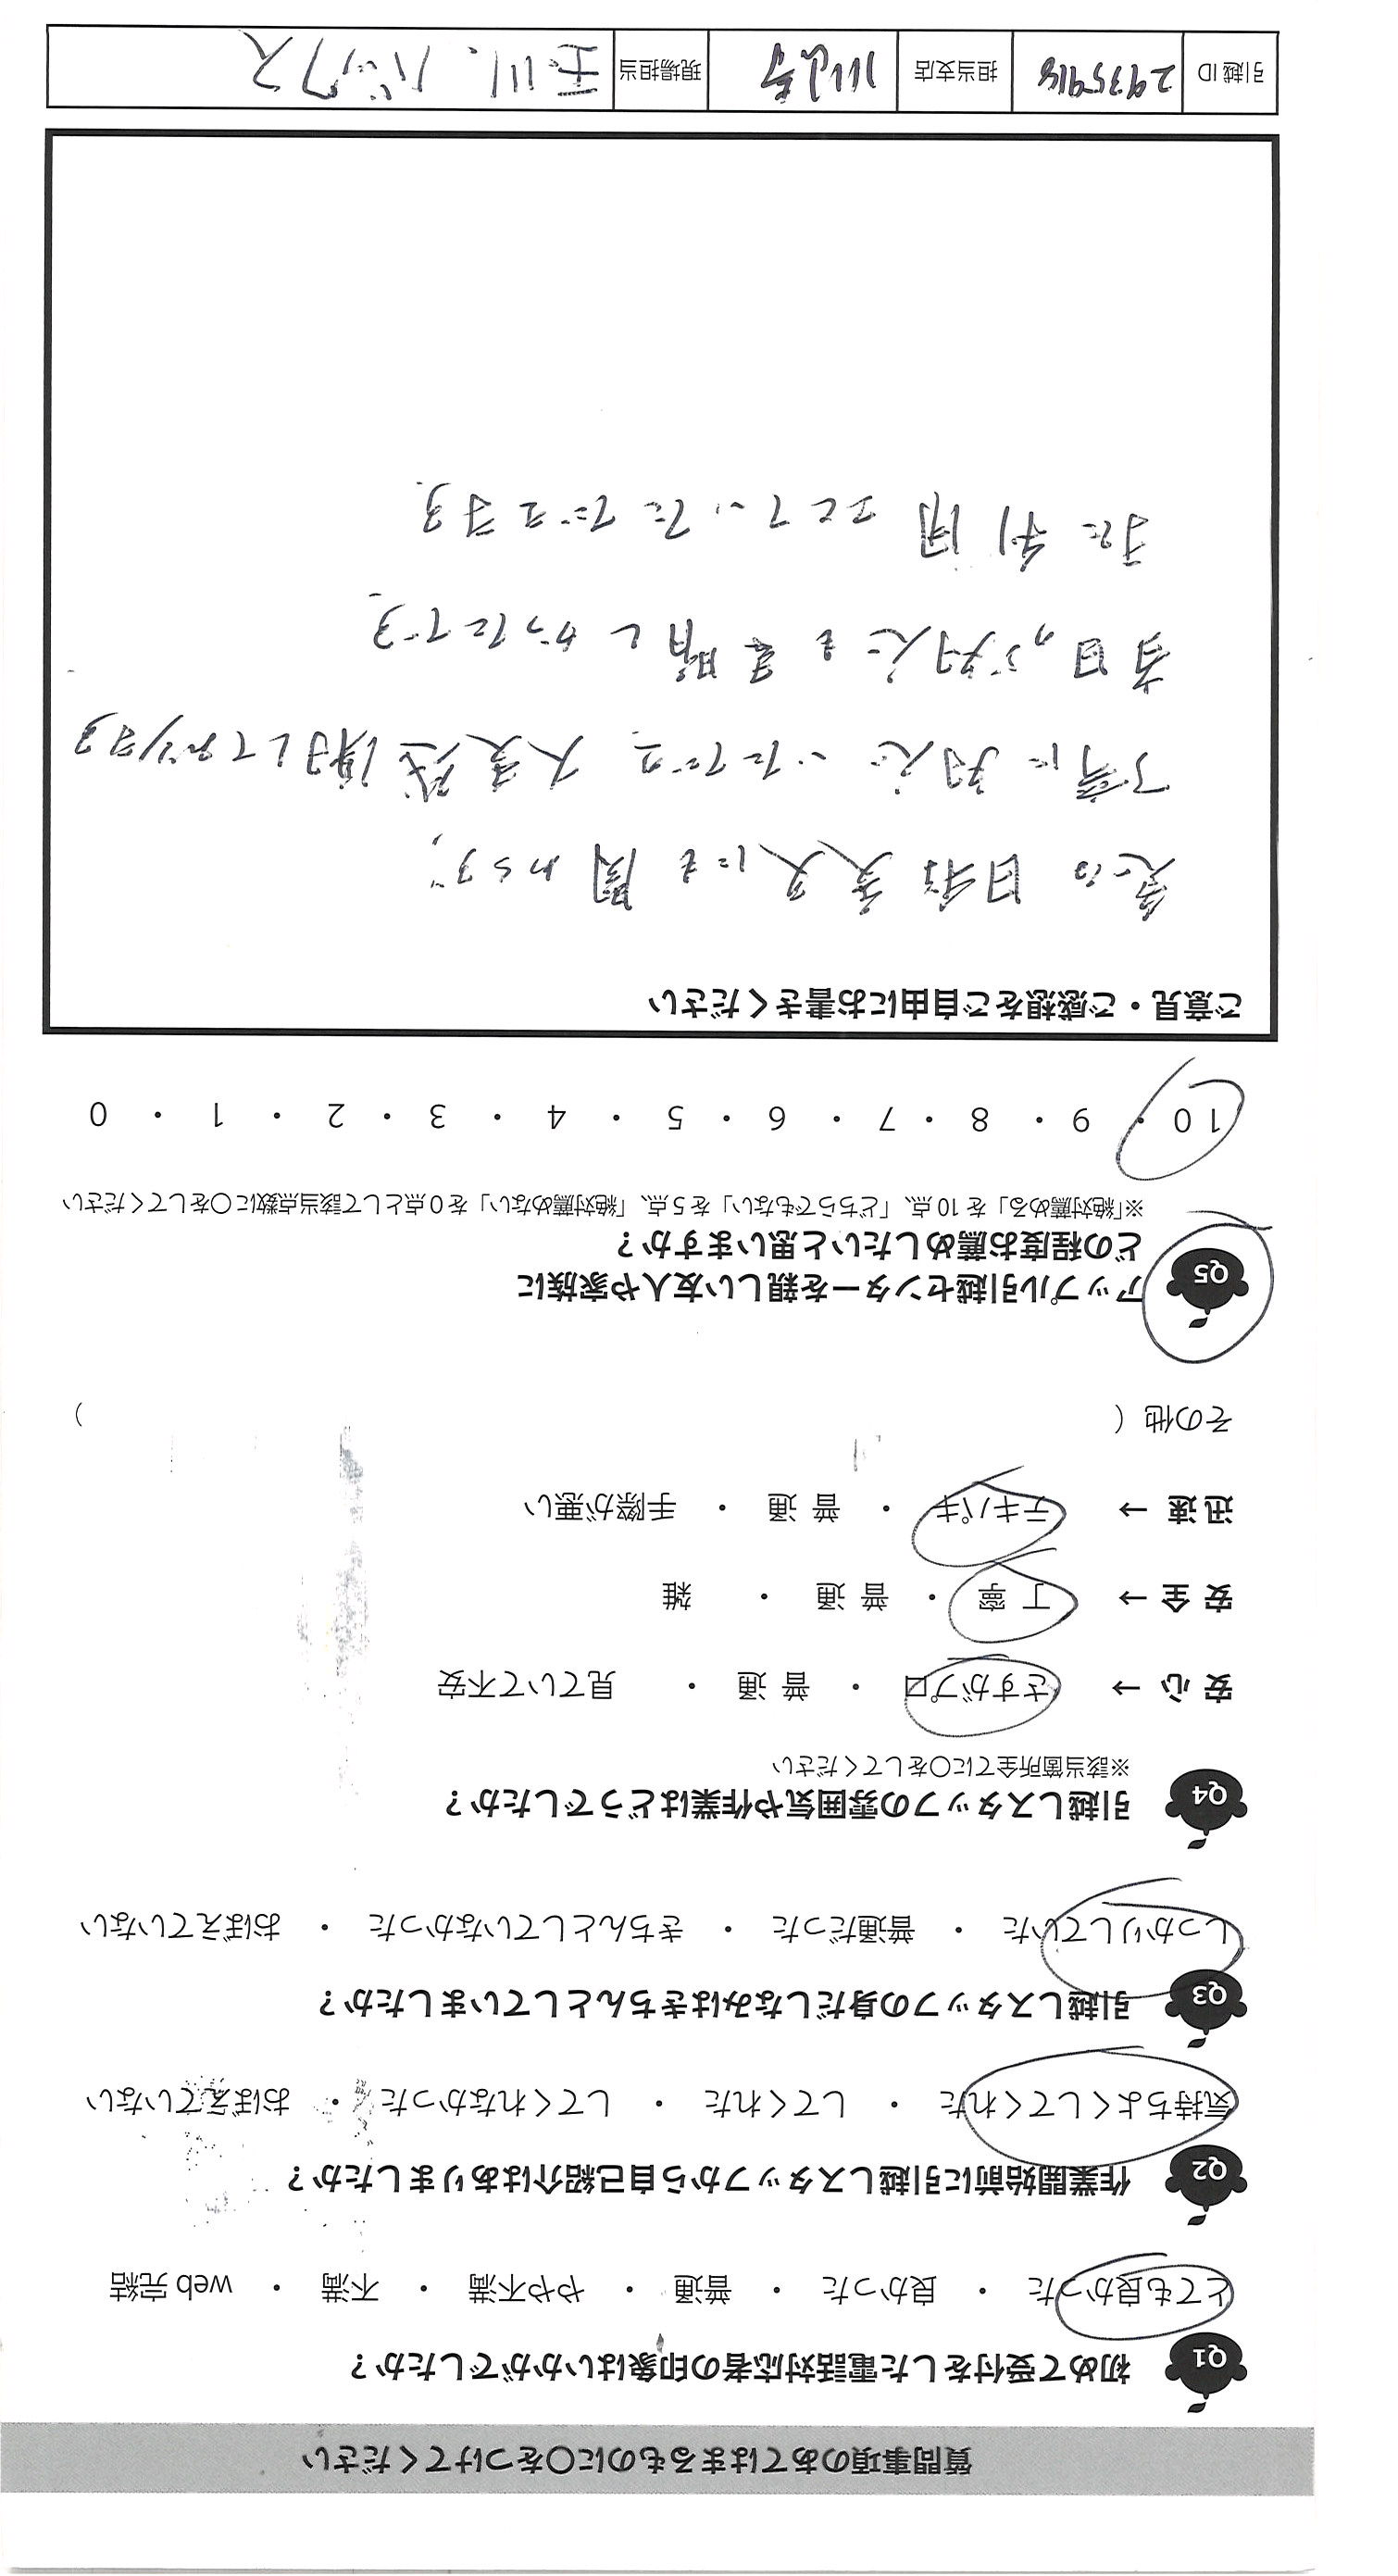 質問事項のあてはまるものに〇をつけてください
Q1 初めて受付をした電話対応者の印象はいかがでしたか？
とても良かった ・ 良かった ・ 普通 ・ やや不満 ・ 不満 ・ web 完結
Q2 作業開始前に引越しスタッフから自己紹介はありましたか？
気持ちよくしてくれた ・ してくれた ・ してくれなかった ・ おぼえていない
Q3 引越しスタッフの身だしなみはきちんとしていましたか？
しっかりしていた ・ 普通だった ・ きちんとしていなかった ・ おぼえていない
Q4 引越しスタッフの雰囲気や作業はどうでしたか？
※該当箇所全てに〇をしてください
安 心 → さすがプロ ・ 普 通 ・ 見ていて不安
安 全 → 丁 寧 ・ 普 通 ・ 雑
迅 速 → テキパキ ・ 普 通 ・ 手際が悪い
その他（ ）
Q5 アップル引越センターを親しい友人や家族に
どの程度お薦めしたいと思いますか？
※「絶対薦める」を 10 点、「どちらでもない」を 5 点、「絶対薦めない」を 0 点として該当点数に〇をしてください
10 ・ 9 ・ 8 ・ 7 ・ 6 ・ 5 ・ 4 ・ 3 ・ 2 ・ 1 ・ 0
ご意見・ご感想をご自由にお書きください
急な日程変更にも関わらず、
丁寧に対応いただき、大変感謝しております
当日の対応も素晴しかったです。
また利用させていただきます。
引越 ID 2935918 担当支店 現場担当 玉川、バックス